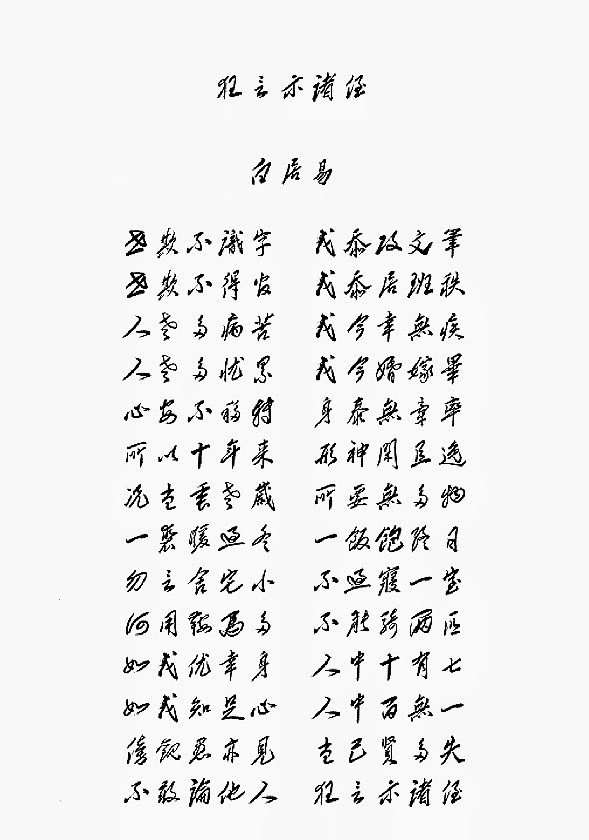 狂言示諸侄
白居易
世欺不識字 我忝攻文筆
世欺不得官 我忝居班秩
人老多病苦 我今幸無疾
人老多忧累 我今婚嫁畢
心安不移轉 身泰無牽率
所以十年来 形神閑且逸
况当垂老歲 所要無多物
一裘暖過冬 一飯飽終日
勿言舍宅小 不過寢一室
何用鞍馬多 不能騎兩匹
如我优幸身 人中十有七
如我知足心 人中百無一
傍觀愚亦見 当己賢多失
不敢論他人 狂言示諸侄